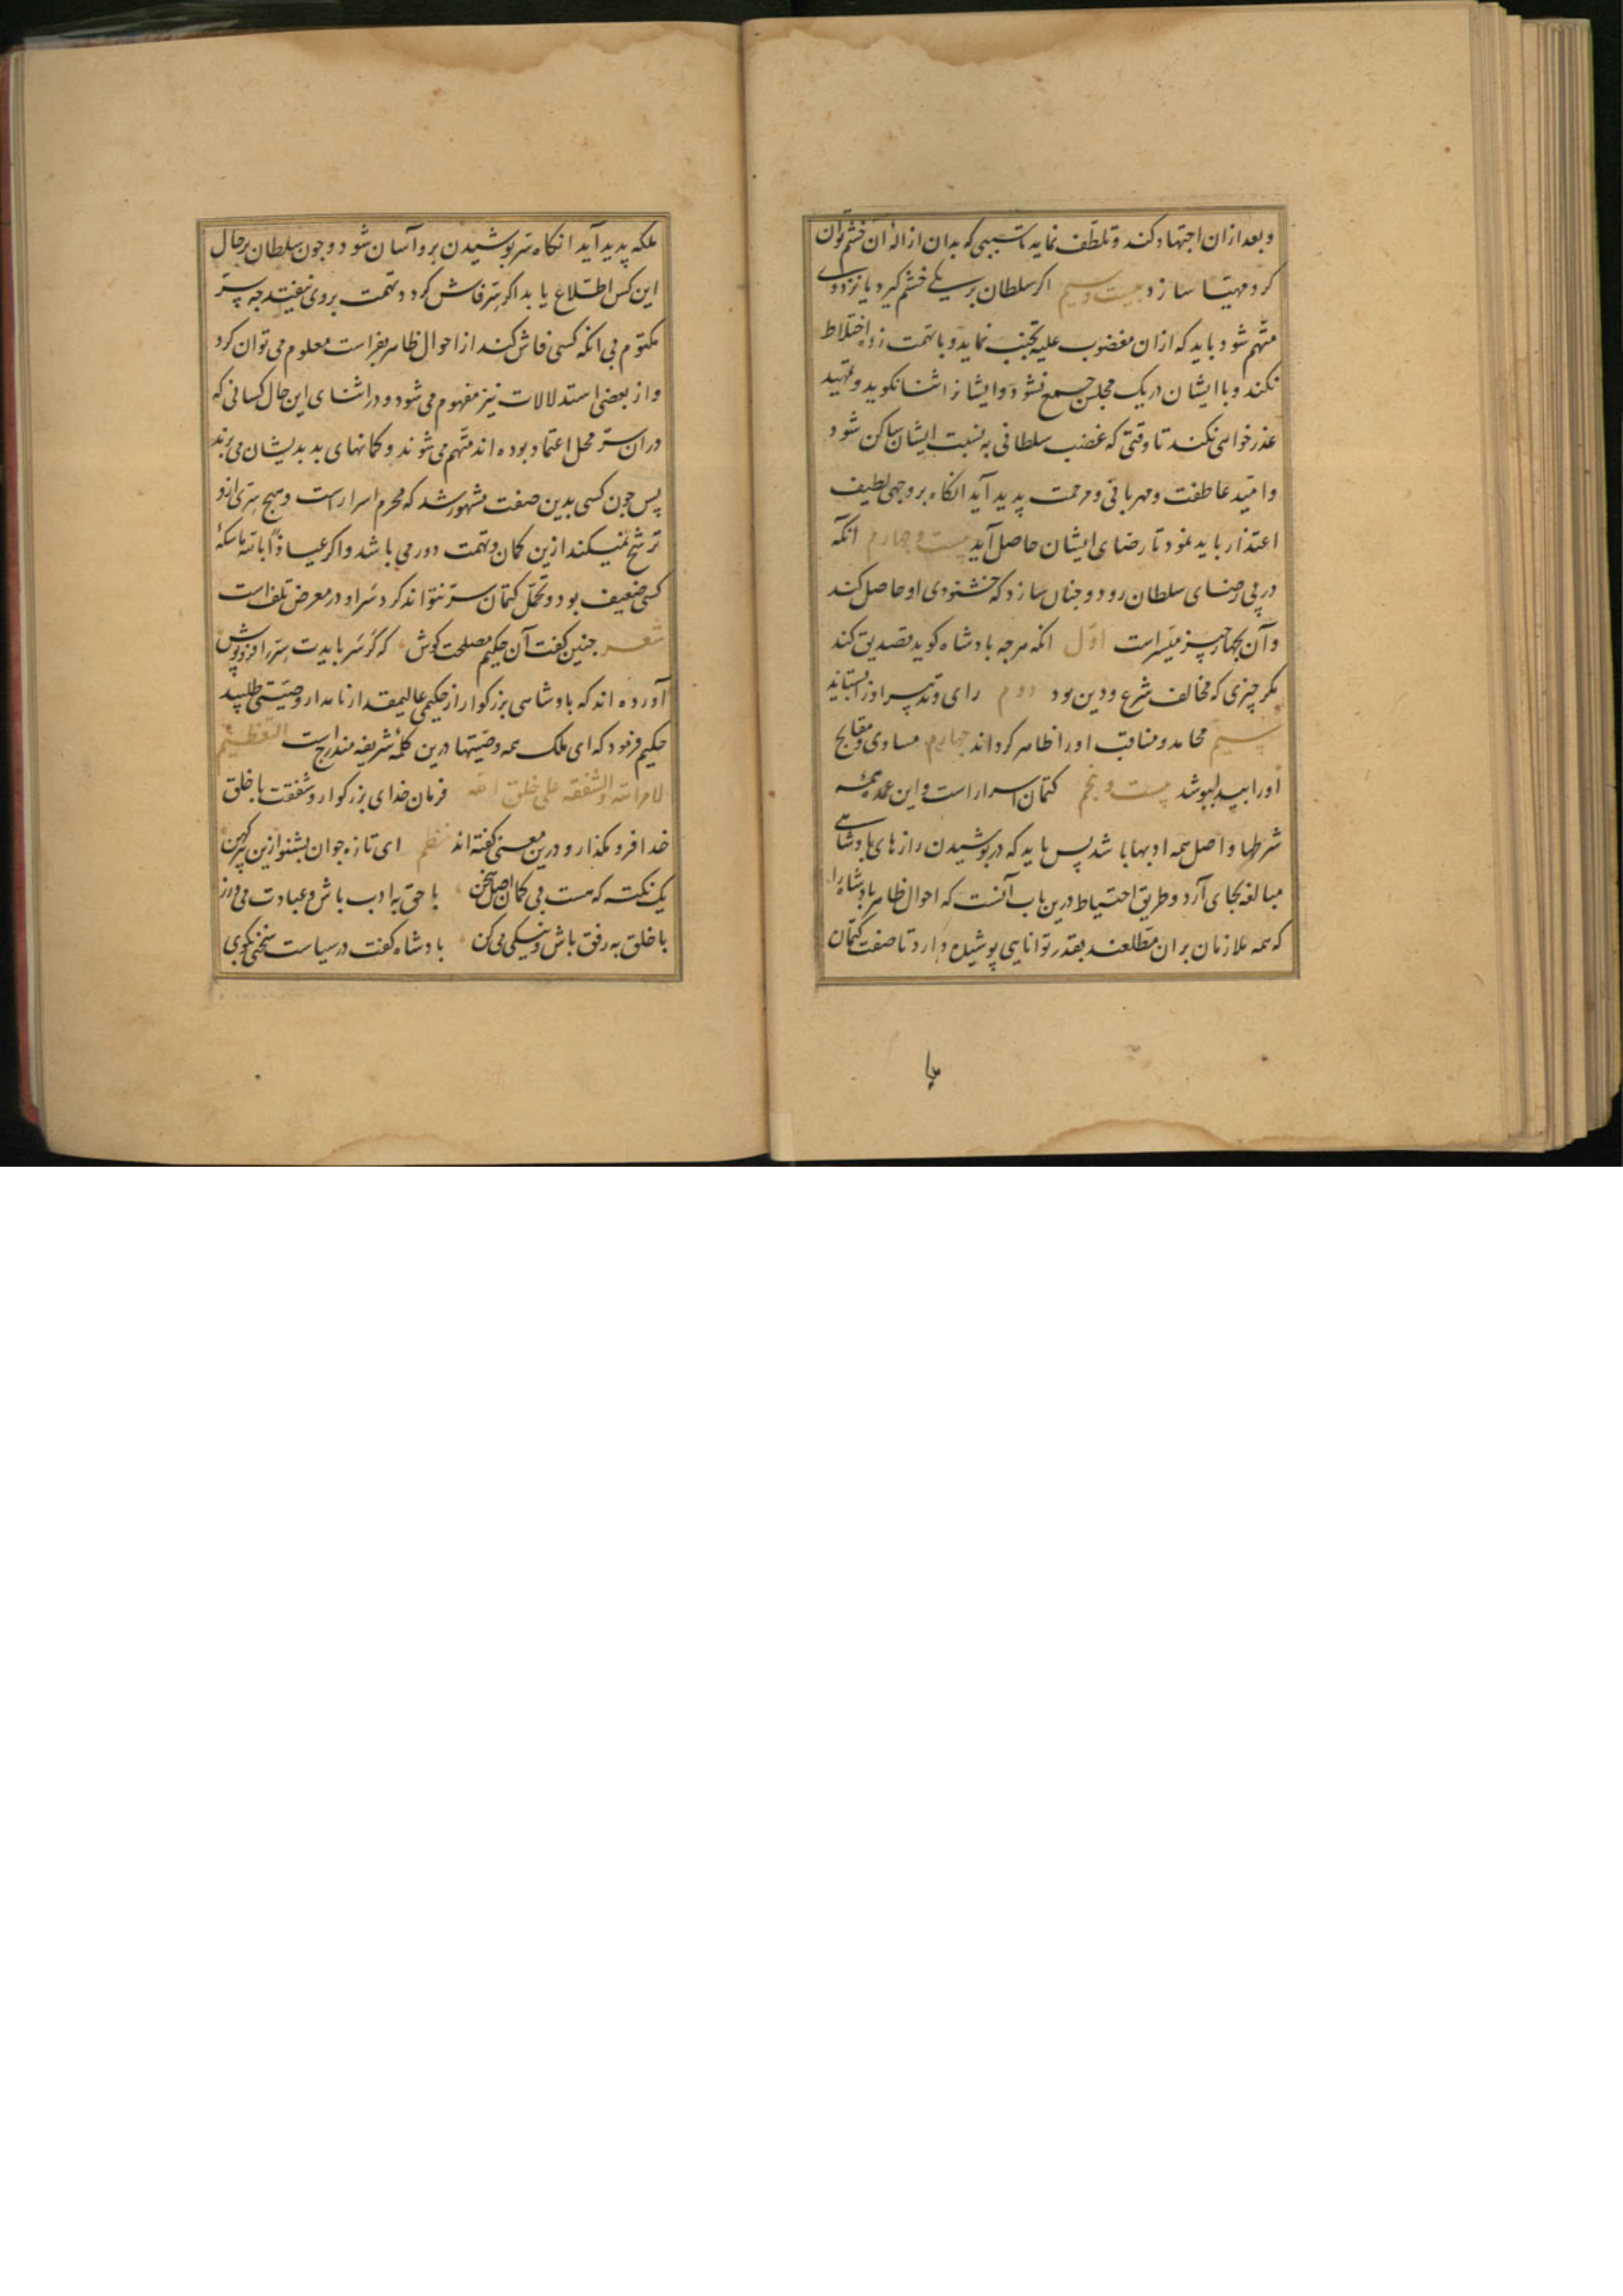 و بعد ازان اجتهاد کند و تلطف نماید تا سببی که بدان ازالهٔ آن خشم توان
کرد مهیا سازد بیست و سیم اکر سلطان بر یکی خشم کیرد یا نزد وی
متهم شود باید که ازان مغضوب علیه تجنب نماید و با تهمت زده اختلاط
نکند و با ایشان در یک مجلس جمع نشود و ایشانرا ثنا نکوید و تمهید
عذرخواهی نکند تا وقتی که غضب سلطانی به نسبت ایشان ساکن شود
و امید عاطفت و مهربانی و مرحمت پدید آید انکاه بر وجهی لطیف
اعتذار باید نمود تا رضای ایشان حاصل آید بیست و چهارم انکه
در پی رضای سلطان رود و چنان سازد که خشنودی او حاصل کند
و آن بچهار چیز میسر است اول انکه هرچه پادشاه کوید تصدیق کند
مکر چیزی که مخالف شرع و دین بود دوم رای و تدبیر او را بستاید
سیم محامد و مناقب او را ظاهر کرداند چهارم مساوی و مقابح
او را بپوشد بیست و پنجم کتمان اسرار است و این عمده همه
شرطها و اصل همه ادبها باشد پس باید که در پوشیدن رازهای پادشاهی
مبالغه بجای آرد و طریق احتیاط درین باب آنست که احوال ظاهر پادشاه را
که همه ملازمان بران مطلعند بقدر توانایی پوشیده دارد تا صفت کتمان
ملکه پدید آید انکاه سر پوشیدن برو آسان شود و چون سلطان بر حال
این کس اطلاع یابد اکر سر فاش کردد تهمت بر وی نیفتد چه سر
مکتوم بی انکه کسی فاش کند از احوال ظاهر بفراست معلوم می توان کرد
و از بعضی استدلالات نیز مفهوم می شود و در اثنای این حال کسانی که
دران سر محل اعتماد بوده اند متهم می شوند و کمانهای بد بدیشان می برند
پس چون کسی بدین صفت مشهور شد که محرم اسرار است و هیچ سری ازو
ترشح نمیکند ازین کمان و تهمت دور می باشد و اکر عیاذا بالله ماسکهٔ
کسی ضعیف بود و تحمل کتمان سر نتواند کرد سر او در معرض تلف است
شعر چنین کفت آن حکیم مصلحت کوش که کر سر بایدت سر را فروپوش
آورده اند که پادشاهی بزرکوار از حکیمی عالیمقدار نامدار وصیتی طلبید
حکیم فرمود که ای ملک همه وصیتها درین کلمهٔ شریفه مندرج است التعظیم
لامر الله و الشفقه علی خلق الله فرمان خدای بزرکوار و شفقت با خلق
خدا فرو مکذار و درین معنی کفته اند نظم ای تازه جوان بشنو ازین پیر کهن
یک نکته که هست بی کمان اصل سخن با حق به ادب باش و عبادت می ورز
با خلق به رفق باش و نیکی می کن پادشاه کفت در سیاست سخنی بکوی